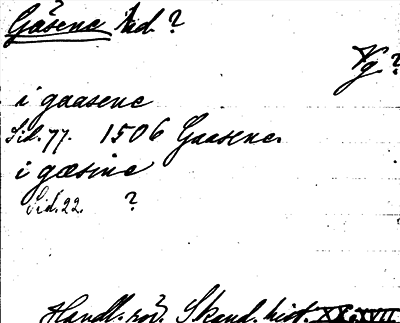 Gåsene hd. ?
Vg ?
i gaasene
Sid. 77. 1506 Gaasene.
i gæsine
Sid. 22. ?
Handl. rör. Skand. hist. XX. XVII